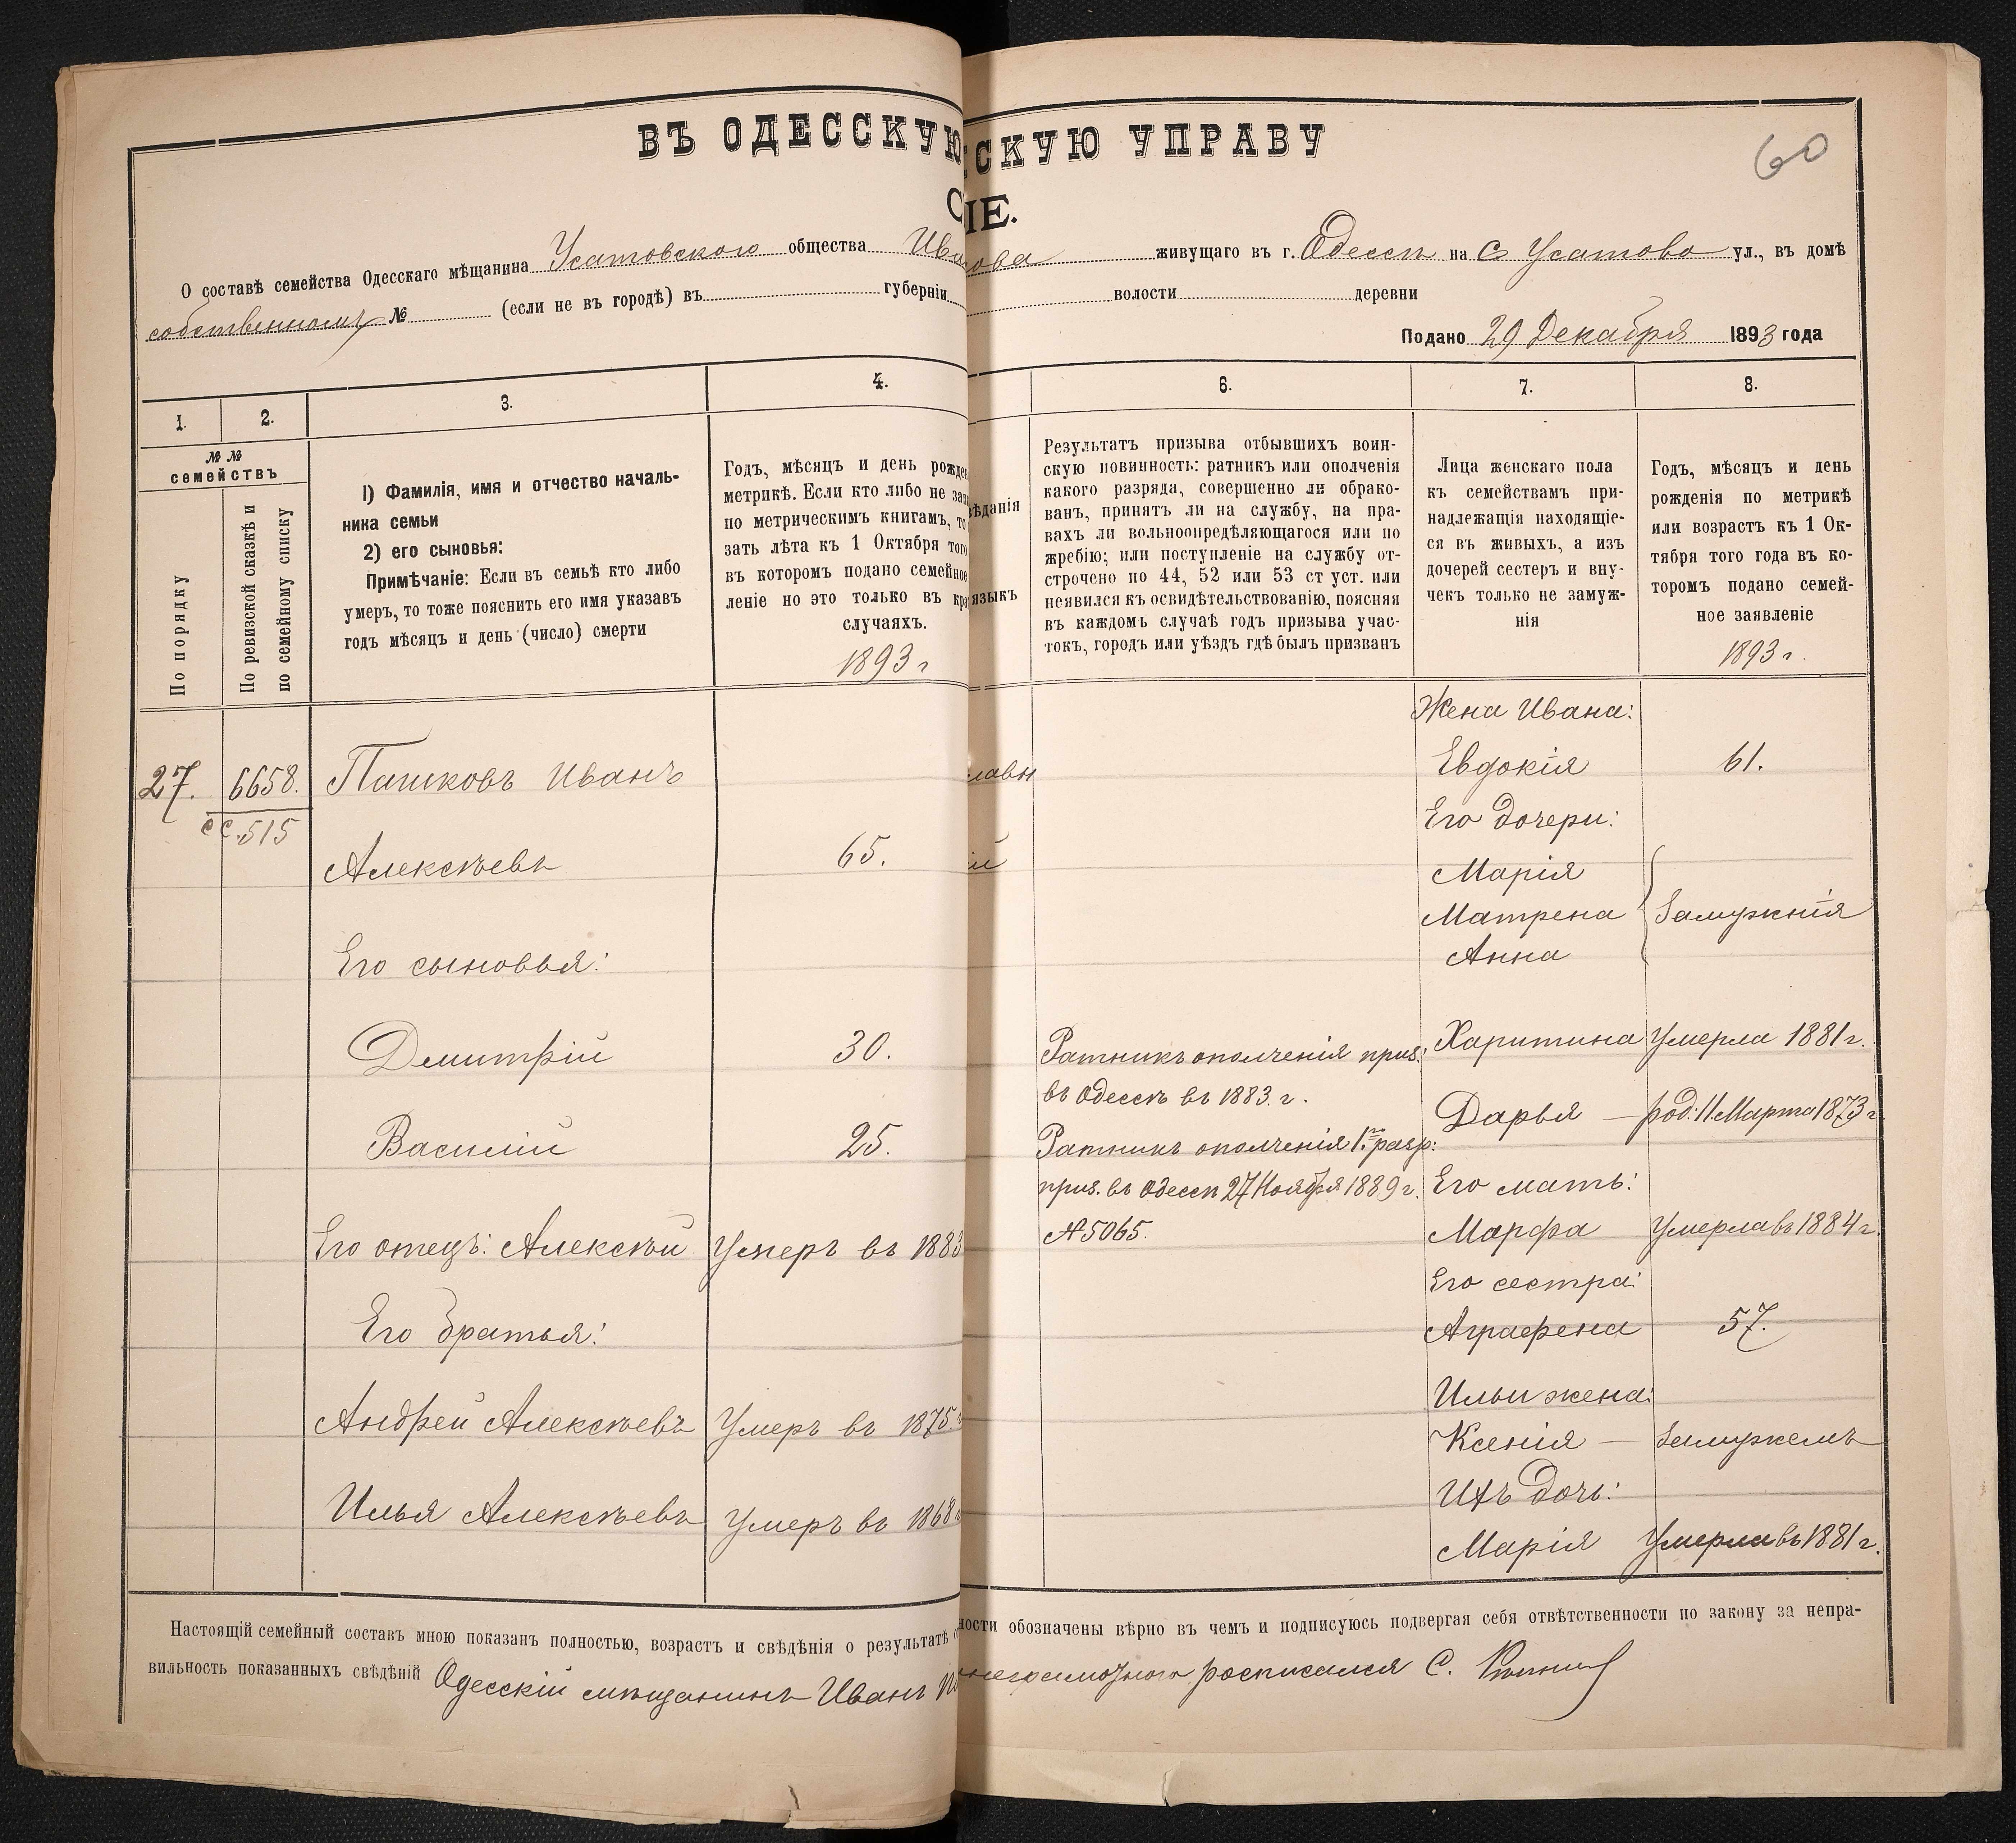 ВЪ ОДЕССКУЮ
СКУЮ УПРАВУ
60
ІЕ.
О составѣ семейства Одесскаго мѣщанина Усатовского общества Ива
нова живущаго въ г. Одессѣ на С Усатово ул., въ домѣ
собственномъ № (если не въ городѣ) въ губерніи
волости деревни
Подано 29 Декабря 1893 года
1.
2.
3.
4.
6.
7.
8.
№ №
семействъ
По порядку
По ревизской сказкѣ и
по семейному списку
1) Фамилія, имя и отчество началь-
ника семьи
2) его сыновья:
Примѣчаніе: Если въ семьѣ кто либо
умеръ, то тоже пояснить его имя указавъ
годъ мѣсяцъ и день (число) смерти
Годъ, мѣсяцъ и день рожден
метрикѣ. Если кто либо не зап
по метрическимъ книгамъ, то
зать лѣта къ 1 Октября того
въ которомъ подано семейное
леніе но это только въ кра
случаяхъ.
1893 г
ѣданія
языкъ
Результатъ призыва отбывшихъ воин-
скую повинность: ратникъ или ополченія
какого разряда, совершенно ли обрако-
ванъ, принятъ ли на службу, на пра-
вахъ ли вольноопредѣляющагося или по
жребію; или поступленіе на службу от-
строчено по 44, 52 или 53 ст уст. или
неявился къ освидѣтельствованію, поясняя
въ каждомъ случаѣ годъ призыва учас-
токъ, городъ или уѣздъ гдѣ былъ призванъ
Лица женскаго пола
къ семействамъ при-
надлежащія находящіе-
ся въ живыхъ, а изъ
дочерей сестеръ и вну-
чекъ только не замуж-
нія
Годъ, мѣсяцъ и день
рожденія по метрикѣ
или возрастъ къ 1 Ок-
тября того года въ ко-
торомъ подано семей-
ное заявленіе
1893 г.
27.
6658.
сс. 515
Пашковъ Иванъ
Алексѣевъ
65.
Его сыновья:
Дмитрій
30.
Василій
25.
Его отецъ: Алексѣй
Умеръ въ 1883
Его братья:
Андрей Алексѣевъ
Умеръ въ 1875. г
Илья Алексѣевъ
Умеръ въ 1868 г
славн
ій
Ратникъ ополченія приз:
въ Одессѣ въ 1883. г.
Ратникъ ополченія 1го разр:
приз. въ Одессѣ 27 Ноября 1889 г.
№ 5065.
Жена Ивана:
Евдокія
61.
Его дочери:
Марія
Матрена
Анна
Замужнія
Харитина
Умерла 1881 г.
Дарья —
род: 11 Марта 1873 г
Его мать:
Марфа
Умерла въ 1884 г.
Его сестра:
Аграфена
57.
Ильи жена:
Ксенія —
Замужемъ
Ихъ дочь:
Марія
Умерла въ 1881 г.
Настоящій семейный составъ мною показанъ полностью, возрастъ и свѣдѣнія о результатѣ о
ности обозначены вѣрно въ чемъ и подписуюсь подвергая себя отвѣтственности по закону за непра-
вильность показанныхъ свѣдѣній Одесскій мѣщанинъ Иванъ П
неграмотного росписался С.